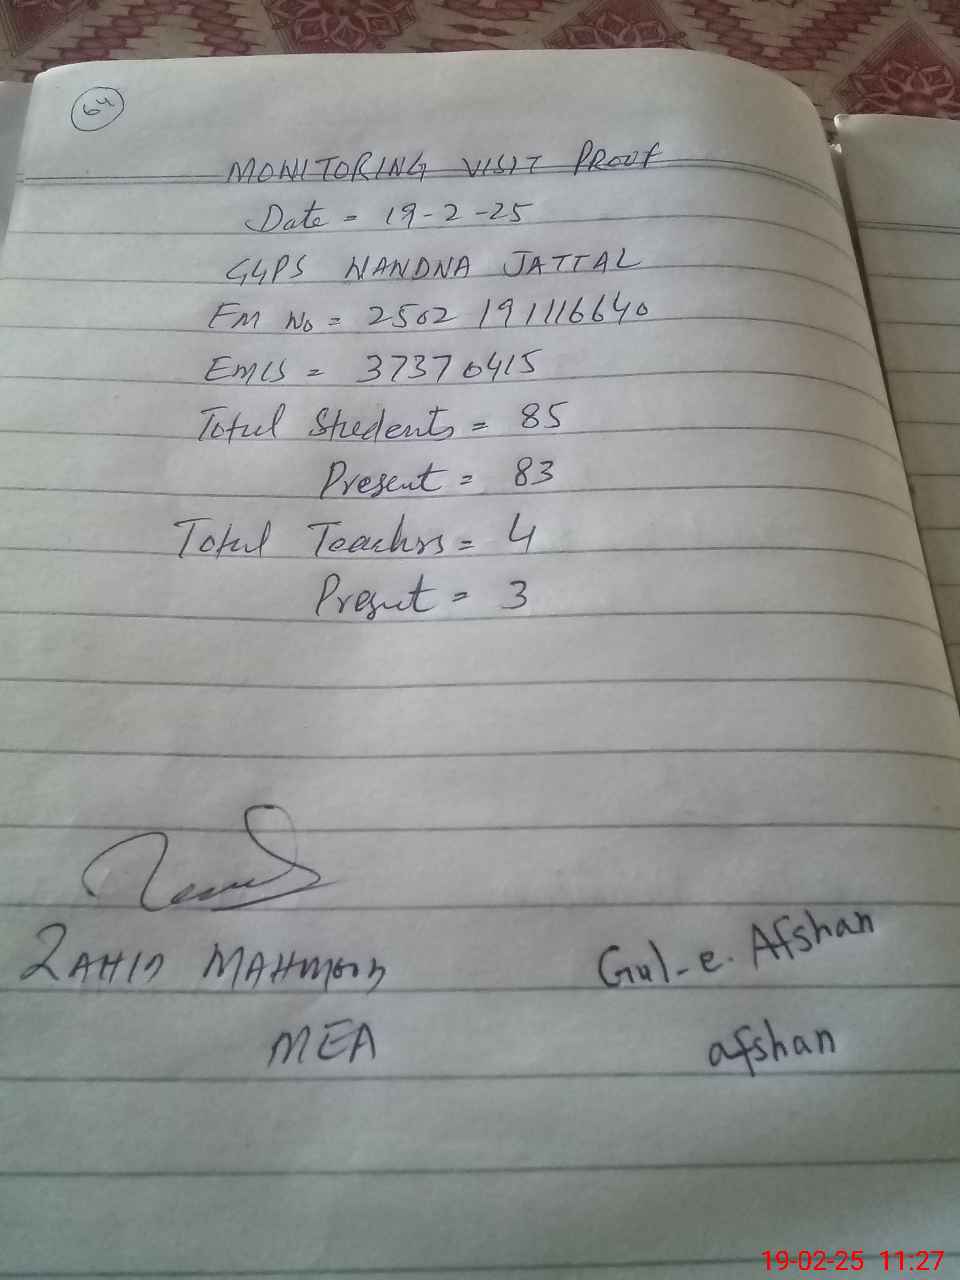 64
MONITORING VISIT PROOF
Date = 19-2-25
GGPS NANDNA JATTAL
FM No = 2502191116640
EMIS = 37370415
Total Students = 85
Present = 83
Total Teachers = 4
Present = 3
ZAHID MAHMOOD
Gul-e. Afshan
MEA
afshan
19-02-25 11:27